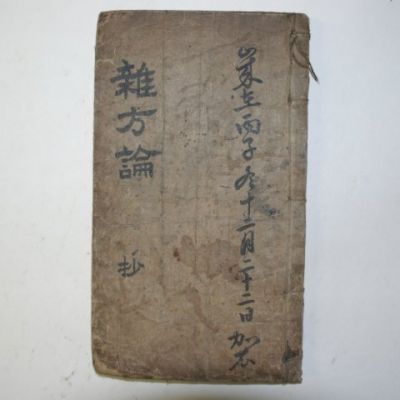 歲在丙子冬十二月二十二日加衣
雜方論 抄